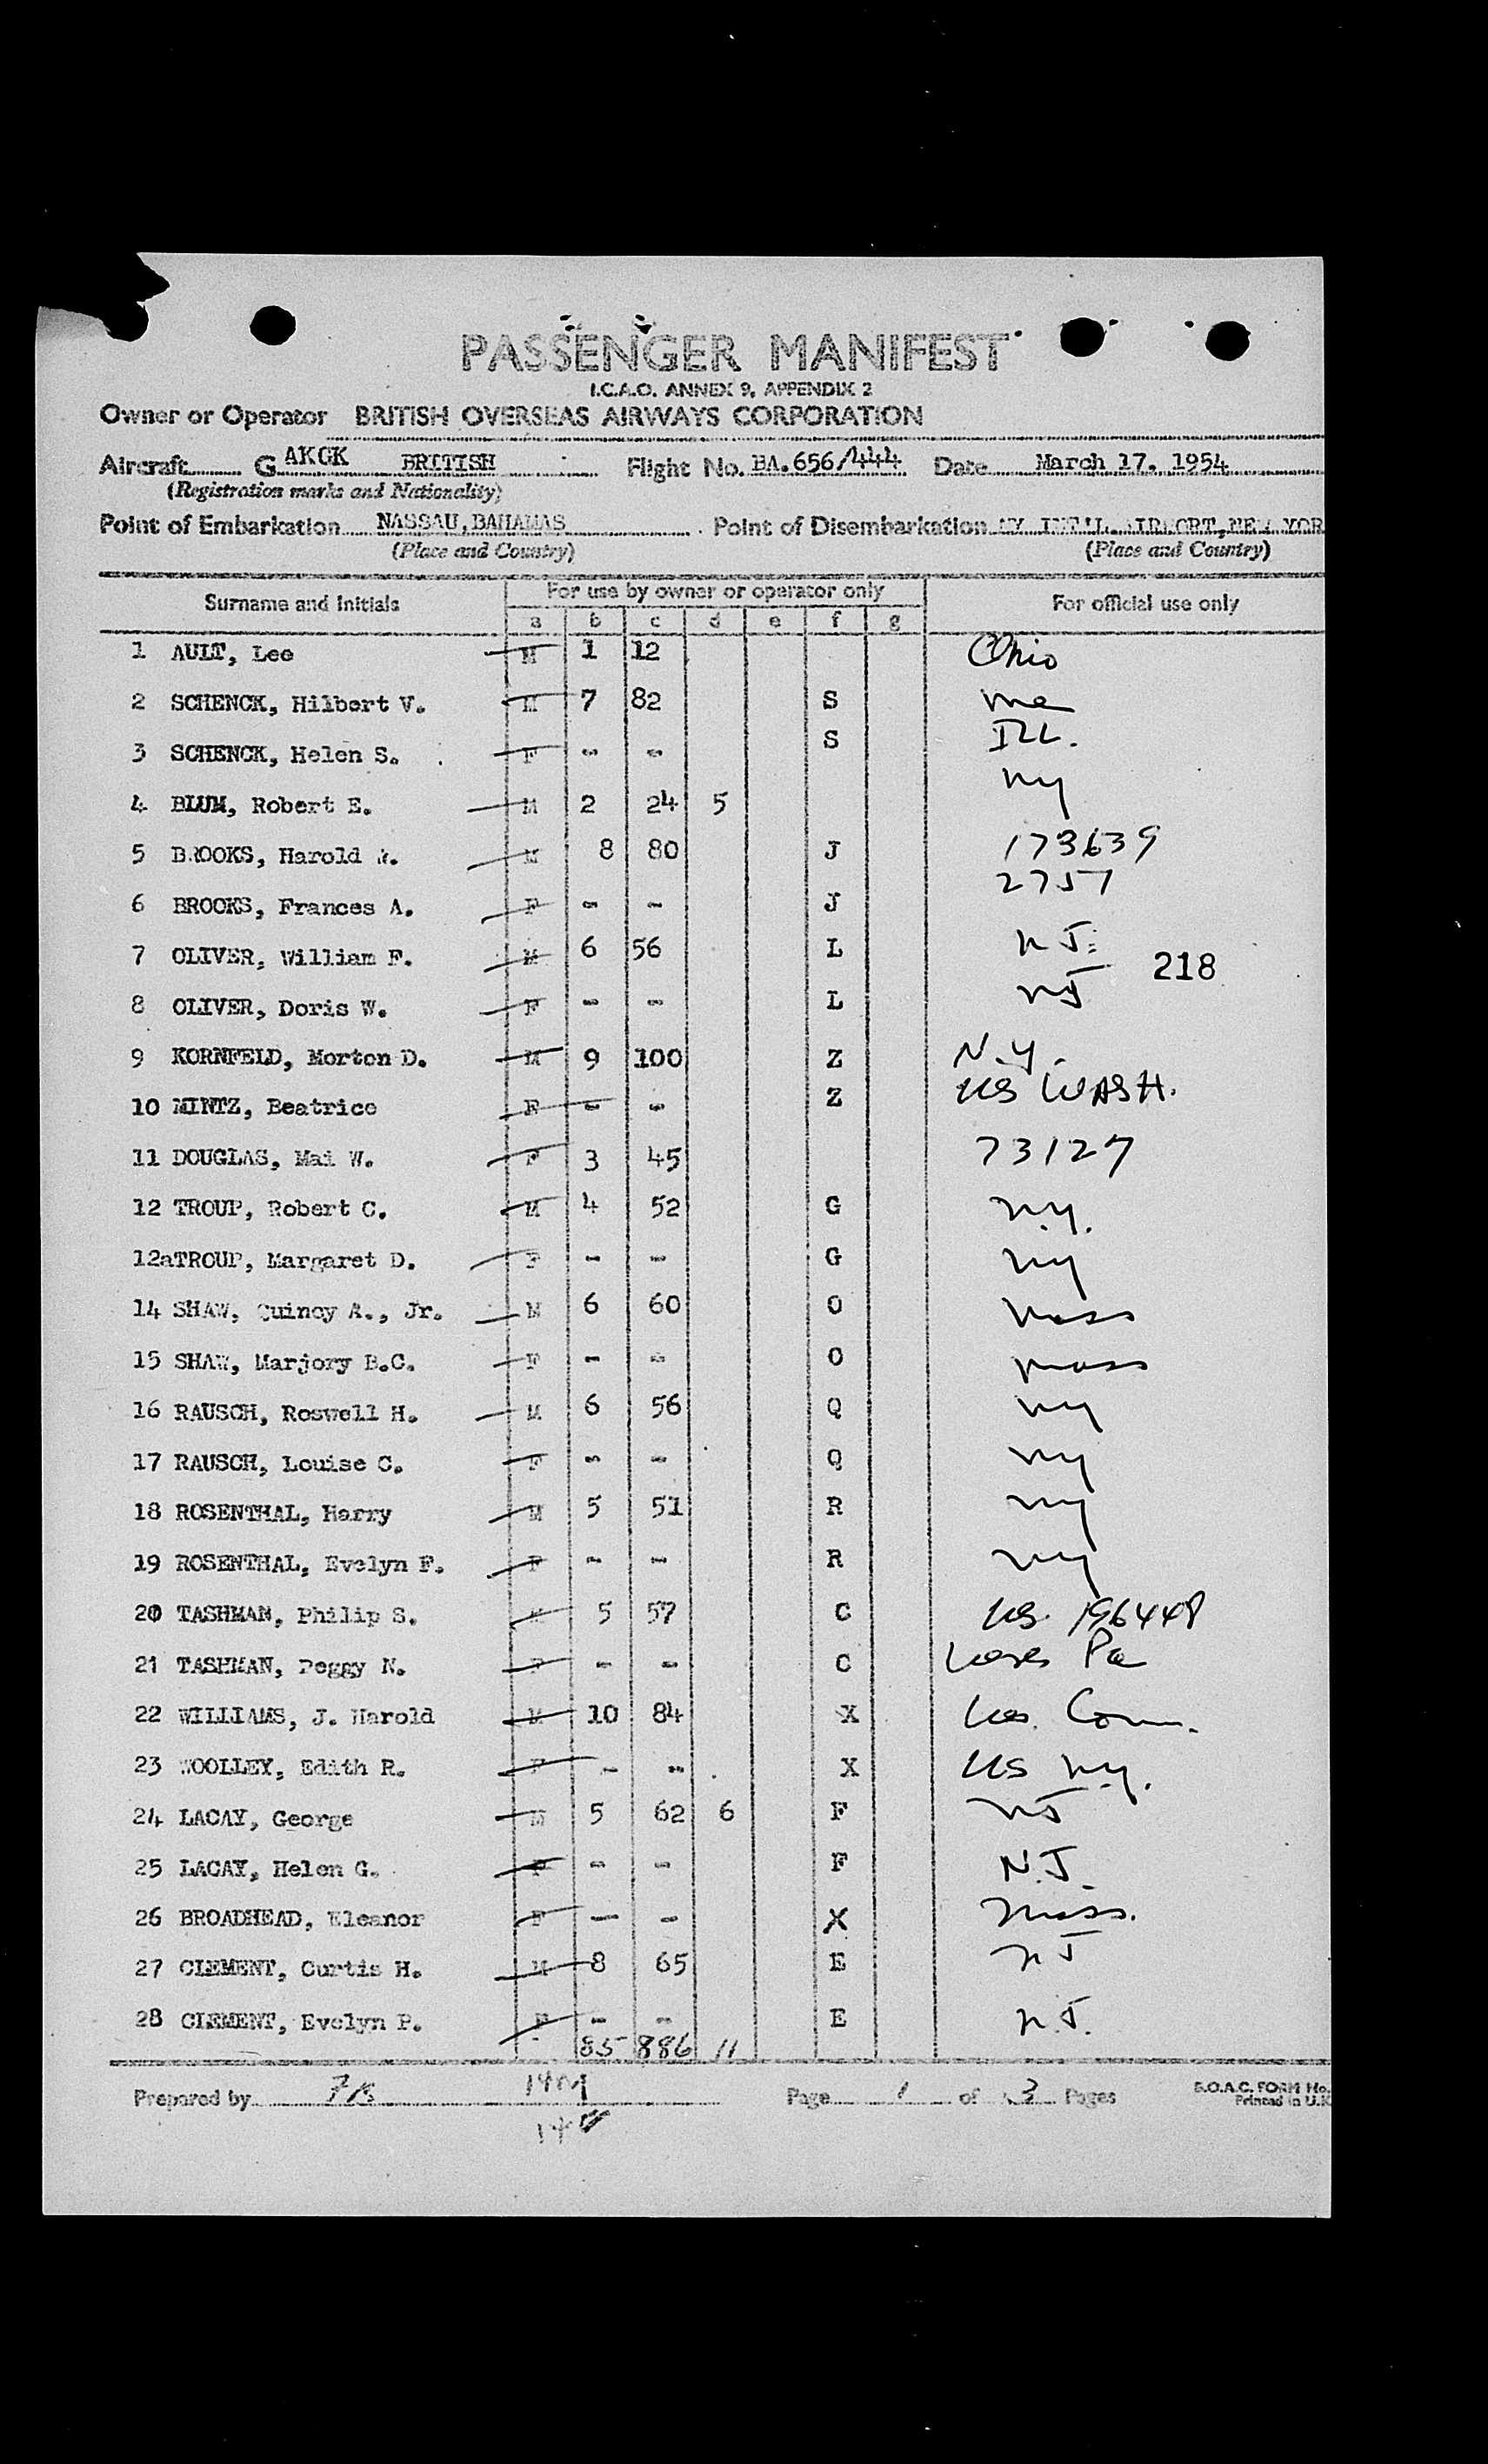 PASSENGER MANIFEST
I.C.A.O. ANNEX 9, APPENDIX 2
Owner or Operator BRITISH OVERSEAS AIRWAYS CORPORATION
Aircraft G AKGK BRITISH Flight No. BA.656/444 Date March 17. 1954
(Registration marks and Nationality)
Point of Embarkation NASSAU,BAHAMAS Point of Disembarkation NY INT'L. AIRPORT,NEW YOR
(Place and Country) (Place and Country)
Surname and Initials For use by owner or operator only For official use only
a b c d e f g
1 AULT, Lee M 1 12 Ohio
2 SCHENCK, Hilbert V. M 7 82 S me
3 SCHENCK, Helen S. F - - S ILL.
4 BLUM, Robert E. M 2 24 5 ny
5 BROOKS, Harold M 8 80 J 173639
6 BROOKS, Frances A. F - - J 2757
7 OLIVER, William F. M 6 56 L n J.
218
8 OLIVER, Doris W. F - - L nJ
9 KORNFELD, Morton D. M 9 100 Z N.y.
10 MINTZ, Beatrice F - - Z US WASH.
11 DOUGLAS, Mai W. F 3 45 73127
12 TROUP, Robert C. M 4 52 G n.y.
12aTROUP, Margaret D. F - - G ny
14 SHAW, Quincy A., Jr. M 6 60 O mass
15 SHAW, Marjory B.C. F - - O mass
16 RAUSCH, Roswell H. M 6 56 Q ny
17 RAUSCH, Louise C. F - - Q ny
18 ROSENTHAL, Harry M 5 51 R ny
19 ROSENTHAL, Evelyn F. F - - R ny
20 TASHMAN, Philip S. M 5 57 C US. 196448
21 TASHMAN, Peggy N. F - - C Pa
22 WILLIAMS, J. Harold M 10 84 X US. Conn.
23 WOOLLEY, Edith R. F - - X US n.y.
24 LACAY, George M 5 62 6 F nJ
25 LACAY, Helen G. F - - F N.J.
26 BROADHEAD, Eleanor F - - X mass.
27 CLEMENT, Curtis H. M 8 65 E n J
28 CLEMENT, Evelyn P. F - - E n.J.
85 886 11
Prepared by Page 1 of 3 Pages B.O.A.C. FORM No.
Printed in U.K